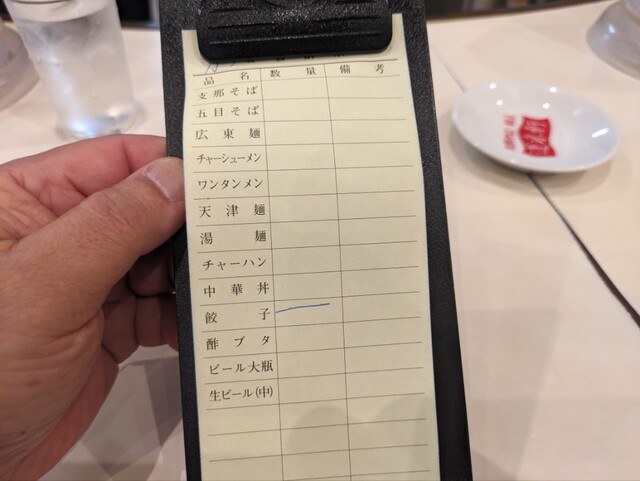 品名 数量 備考
支那そば
五目そば
広東麺
チャーシューメン
ワンタンメン
天津麺
湯麺
チャーハン
中華丼
餃子 一
酢ブタ
ビール大瓶
生ビール(中)